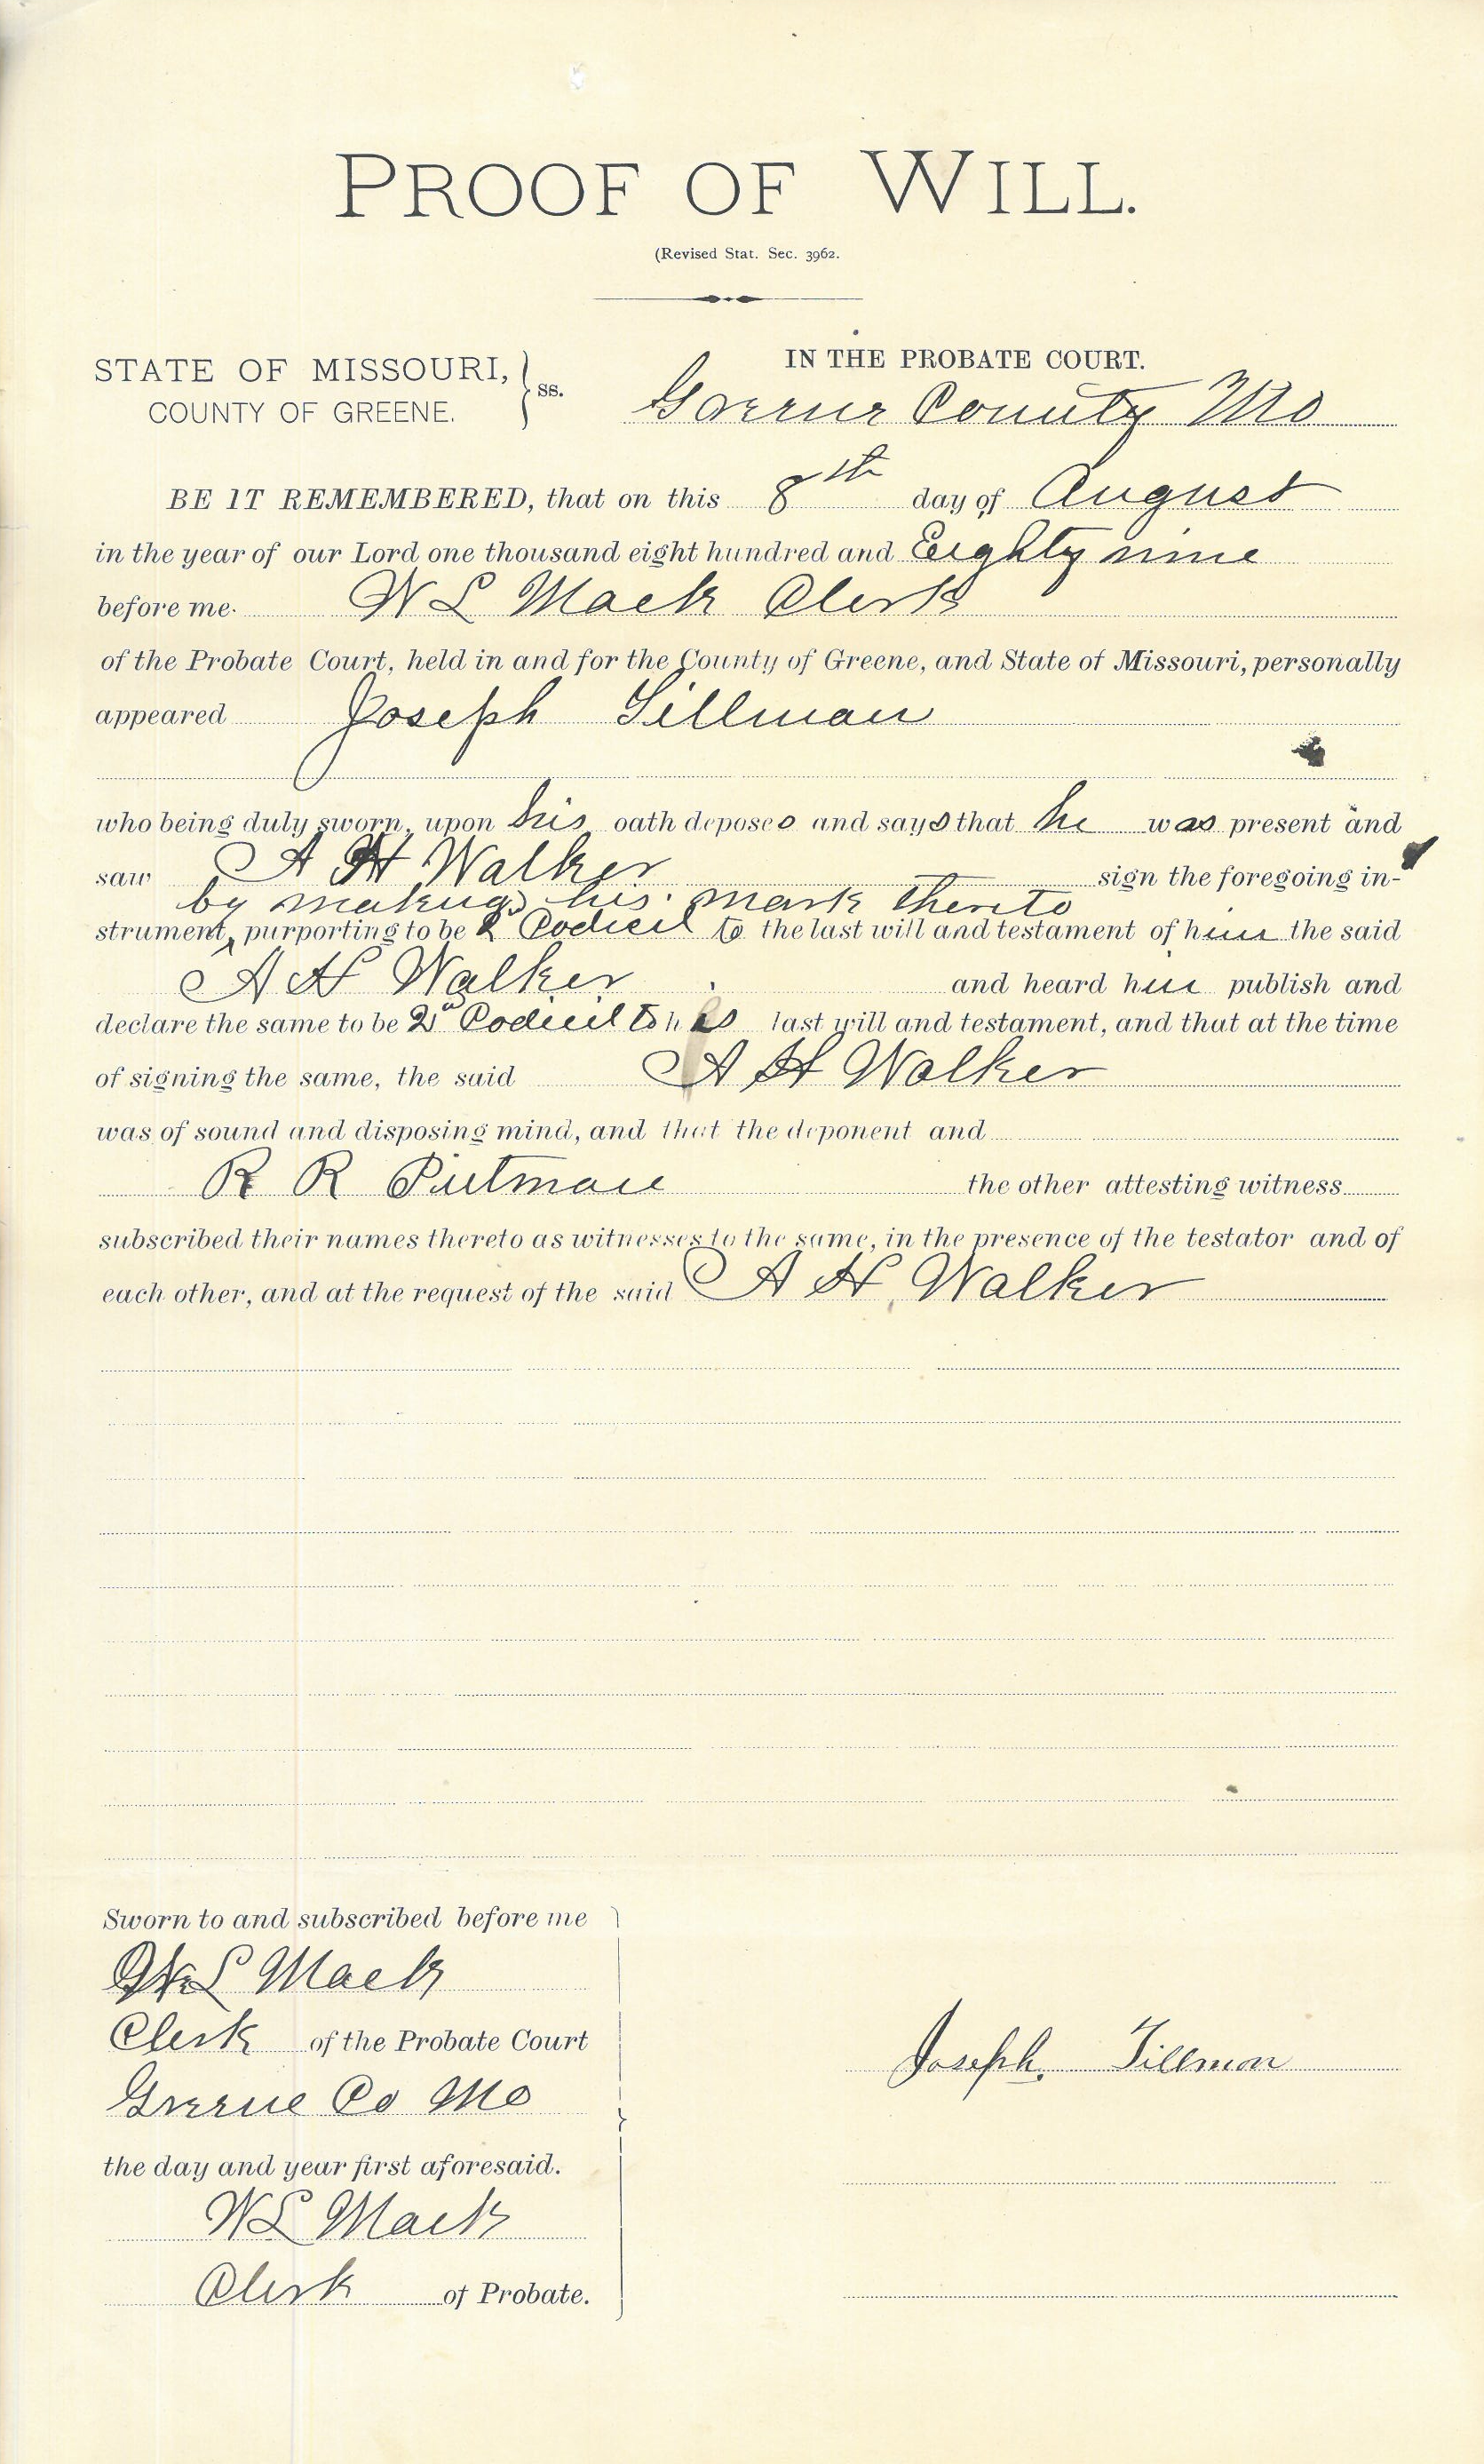 PROOF OF WILL.
(Revised Stat. Sec. 3962.
STATE OF MISSOURI, } ss.
COUNTY OF GREENE.
IN THE PROBATE COURT.
Greene County Mo
BE IT REMEMBERED, that on this 8th day of August
in the year of our Lord one thousand eight hundred and Eighty nine
before me W L Mack Clerk
of the Probate Court, held in and for the County of Greene, and State of Missouri, personally
appeared Joseph Tillman
who being duly sworn, upon his oath deposes and says that he was present and
saw A H Walker sign the foregoing in-
by making his mark thereto
strument, purporting to be 2d Codicil to the last will and testament of him the said
A H Walker and heard him publish and
declare the same to be 2d Codicil to his last will and testament, and that at the time
of signing the same, the said A H Walker
was of sound and disposing mind, and that the deponent and
R R Putman the other attesting witness
subscribed their names thereto as witnesses to the same, in the presence of the testator and of
each other, and at the request of the said A H Walker
Sworn to and subscribed before me
W L Mack
Clerk of the Probate Court
Greene Co Mo
the day and year first aforesaid.
W L Mack
Clerk of Probate.
Joseph. Tillman